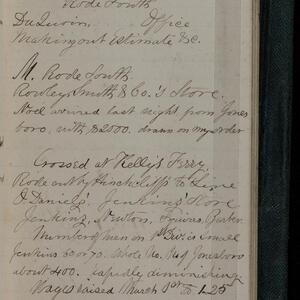 Rode South
DuQuoin. Office
Making out Estimate &c.
M. Rode South.
Rowley, Smith, & Co.'s Store.
Noel arrived last night from Jones
boro, with $2500. drawn on my order
Crossed at Kelly's Ferry,
Rode out by Hinchcliff's to Line
O Daniels', Jenkins' Store
Jenkins, Newton, Barker.
Number of men on 1st Div. is small
Jenkins 60 or 70. Whole No. Jonesboro
about 400. rapidly diminishing.
Wages raised March 1st to 1.25